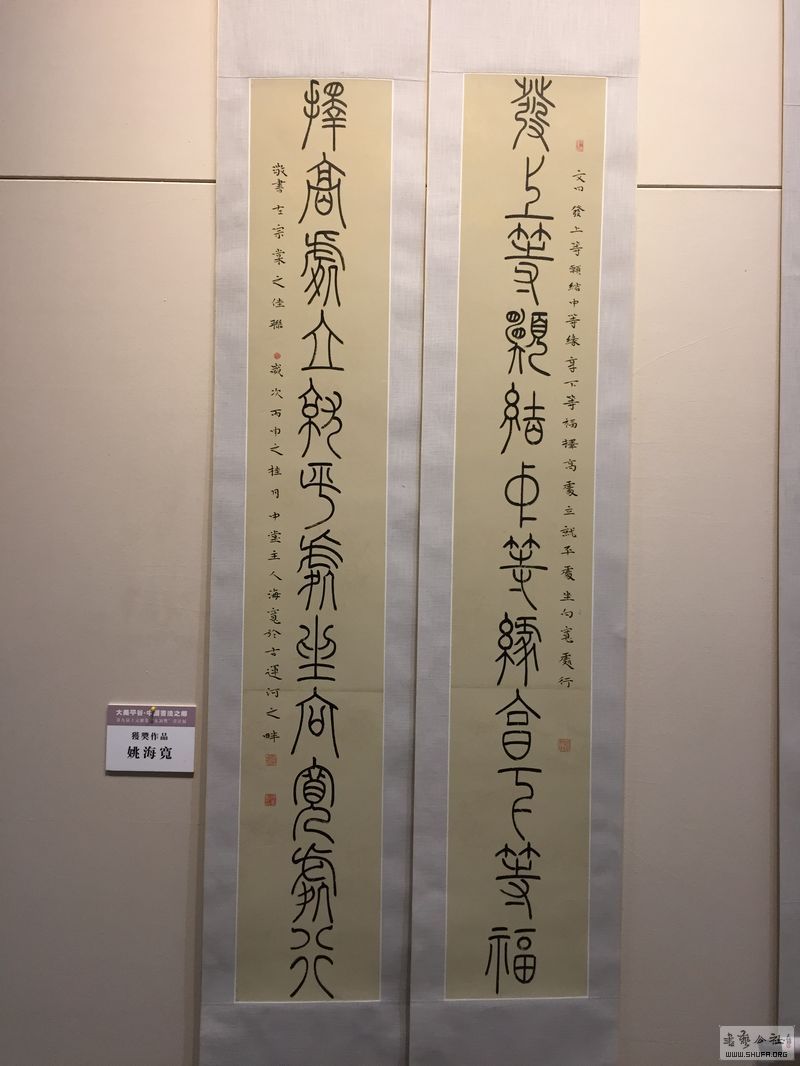 文曰發上等願結中等緣享下等福擇高處立就平處坐向寬處行
發上等願結中等緣享下等福
擇高處立就平處坐向寬處行
敬書左宗棠之佳聯 歲次丙申之桂月中堂主人海寬於古運河之畔
大美平谷·中國書法之鄉
獲獎作品
姚海寬
公社
WWW.SHUFA.ORG